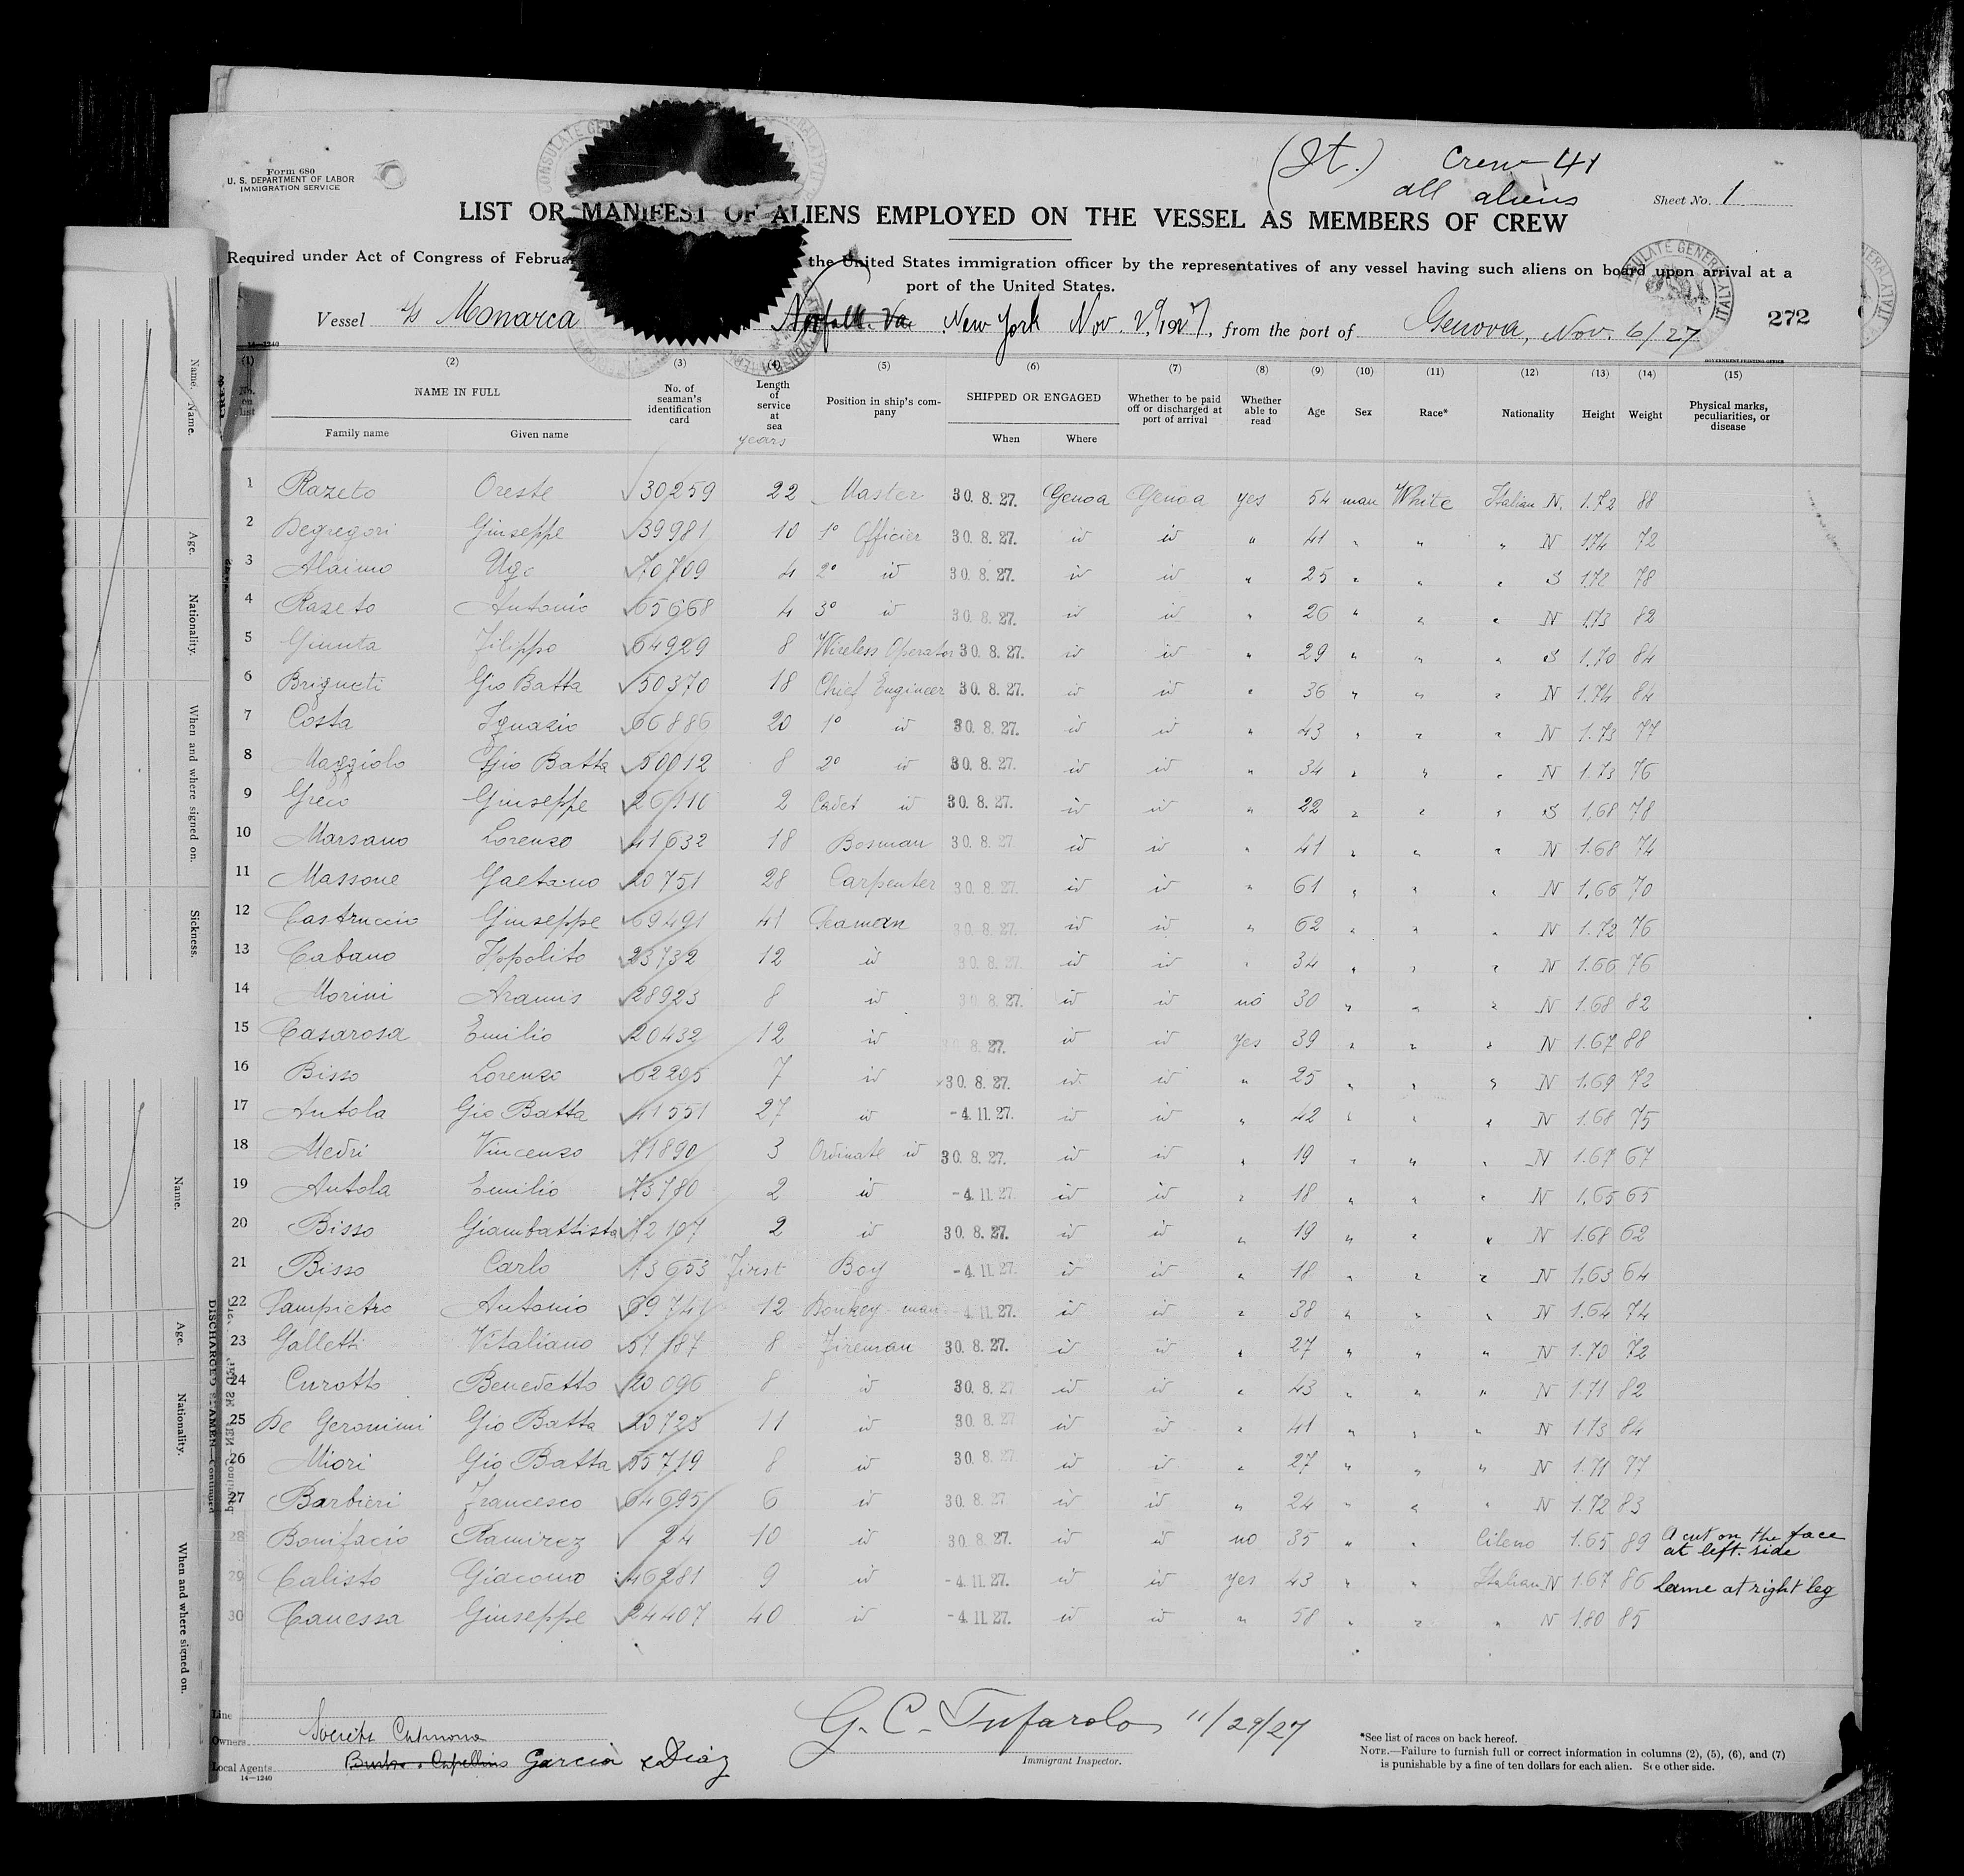 Form 680
U. S. DEPARTMENT OF LABOR
IMMIGRATION SERVICE
(It.) Crew 41
all aliens
Sheet No. 1
LIST OR MANIFEST OF ALIENS EMPLOYED ON THE VESSEL AS MEMBERS OF CREW
Required under Act of Congress of Februa the United States immigration officer by the representatives of any vessel having such aliens on board upon arrival at a
port of the United States.
Vessel s/s Monarca Norfolk. Va New York Nov. 29, 1927, from the port of Genova, Nov. 6/27
272
14—1240
GOVERNMENT PRINTING OFFICE
(1) (2) (3) (4) (5) (6) (7) (8) (9) (10) (11) (12) (13) (14) (15)
No. on list NAME IN FULL Family name Given name No. of seaman's identification card Length of service at sea years Position in ship's company SHIPPED OR ENGAGED When Where Whether to be paid off or discharged at port of arrival Whether able to read Age Sex Race* Nationality Height Weight Physical marks, peculiarities, or disease
1 Razeto Oreste 30259 22 Master 30. 8. 27. Genoa Genoa yes 54 man White Italian N. 1.72 88
2 Degregori Giuseppe 39981 10 1° Officier 30. 8. 27. id id " 41 " " " N 1.74 72
3 Alaimo Ugo 70709 4 2° id 30. 8. 27. id id " 25 " " " S 1.72 78
4 Razeto Antonio 65668 4 3° id 30. 8. 27. id id " 26 " " " N 1.73 82
5 Giunta Filippo 64929 8 Wireless Operator 30. 8. 27. id id " 29 " " " S 1.70 84
6 Brigneti Gio Batta 50370 18 Chief Engineer 30. 8. 27. id id " 36 " " " N 1.74 84
7 Costa Ignazio 66886 20 1° id 30. 8. 27. id id " 43 " " " N 1.73 77
8 Maggiolo Gio Batta 50012 8 2° id 30. 8. 27. id id " 34 " " " N 1.73 76
9 Greco Giuseppe 26110 2 Cadet id 30. 8. 27. id id " 22 " " " S 1.68 78
10 Marsano Lorenzo 41632 18 Bosman 30. 8. 27 id id " 41 " " " N 1.68 74
11 Massone Gaetano 20751 28 Carpenter 30. 8. 27. id id " 61 " " " N 1.66 70
12 Castruccio Giuseppe 69491 41 Seaman 30. 8. 27. id id " 62 " " " N 1.72 76
13 Cabano Ippolito 23732 12 id 30. 8. 27 id id " 34 " " " N 1.66 76
14 Morini Aramis 28923 8 id 30. 8. 27. id id no 30 " " " N 1.68 82
15 Casarosa Emilio 20432 12 id 30. 8. 27. id id yes 39 " " " N 1.67 88
16 Bisso Lorenzo 62205 7 id 30. 8. 27. id id " 25 " " " N 1.69 72
17 Antola Gio Batta 41551 27 id -4. 11. 27. id id " 42 " " " N 1.68 75
18 Medri Vincenzo 71890 3 Ordinate id 30. 8. 27. id id " 19 " " " N 1.67 67
19 Antola Emilio 73780 2 id -4. 11. 27. id id " 18 " " " N 1.65 65
20 Bisso Giambattista 72107 2 id 30. 8. 27. id id " 19 " " " N 1.68 62
21 Bisso Carlo 73653 First Boy -4. 11. 27. id id " 18 " " " N 1.63 64
22 Pampietro Antonio 12 Donkey-man -4. 11. 27. id id " 38 " " " N 1.64 74
23 Galletti Vitaliano 57187 8 Fireman 30. 8. 27. id id " 27 " " " N 1.70 72
24 Curotto Benedetto 20096 8 id 30. 8. 27 id id " 43 " " " N 1.71 82
25 De Geronimi Gio Batta 20723 11 id 30. 8. 27 id id " 41 " " " N 1.73 84
26 Miori Gio Batta 55719 8 id 30. 8. 27. id id " 27 " " " N 1.71 77
27 Barbieri Francesco 64695 6 id 30. 8. 27 id id " 24 " " " N 1.72 83
28 Bonifacio Ramirez 24 10 id 30. 8. 27. id id no 35 " " Cileno 1.65 89 A cut on the face at left. side
29 Calisto Giacomo 46281 9 id -4. 11. 27. id id yes 43 " " Italian N 1.67 86 Lame at right leg
30 Canessa Giuseppe 24407 40 id -4. 11. 27. id id " 58 " " " N 1.80 85
Line
Owners
Local Agents Garcia & Diaz
14—1240
G. C. Tufarolo 11/29/27
Immigrant Inspector.
*See list of races on back hereof.
NOTE.—Failure to furnish full or correct information in columns (2), (5), (6), and (7)
is punishable by a fine of ten dollars for each alien. See other side.
Name. Name.
Age.
Nationality.
When and where signed on.
Sickness.
Name.
Age.
Nationality.
When and where signed on.